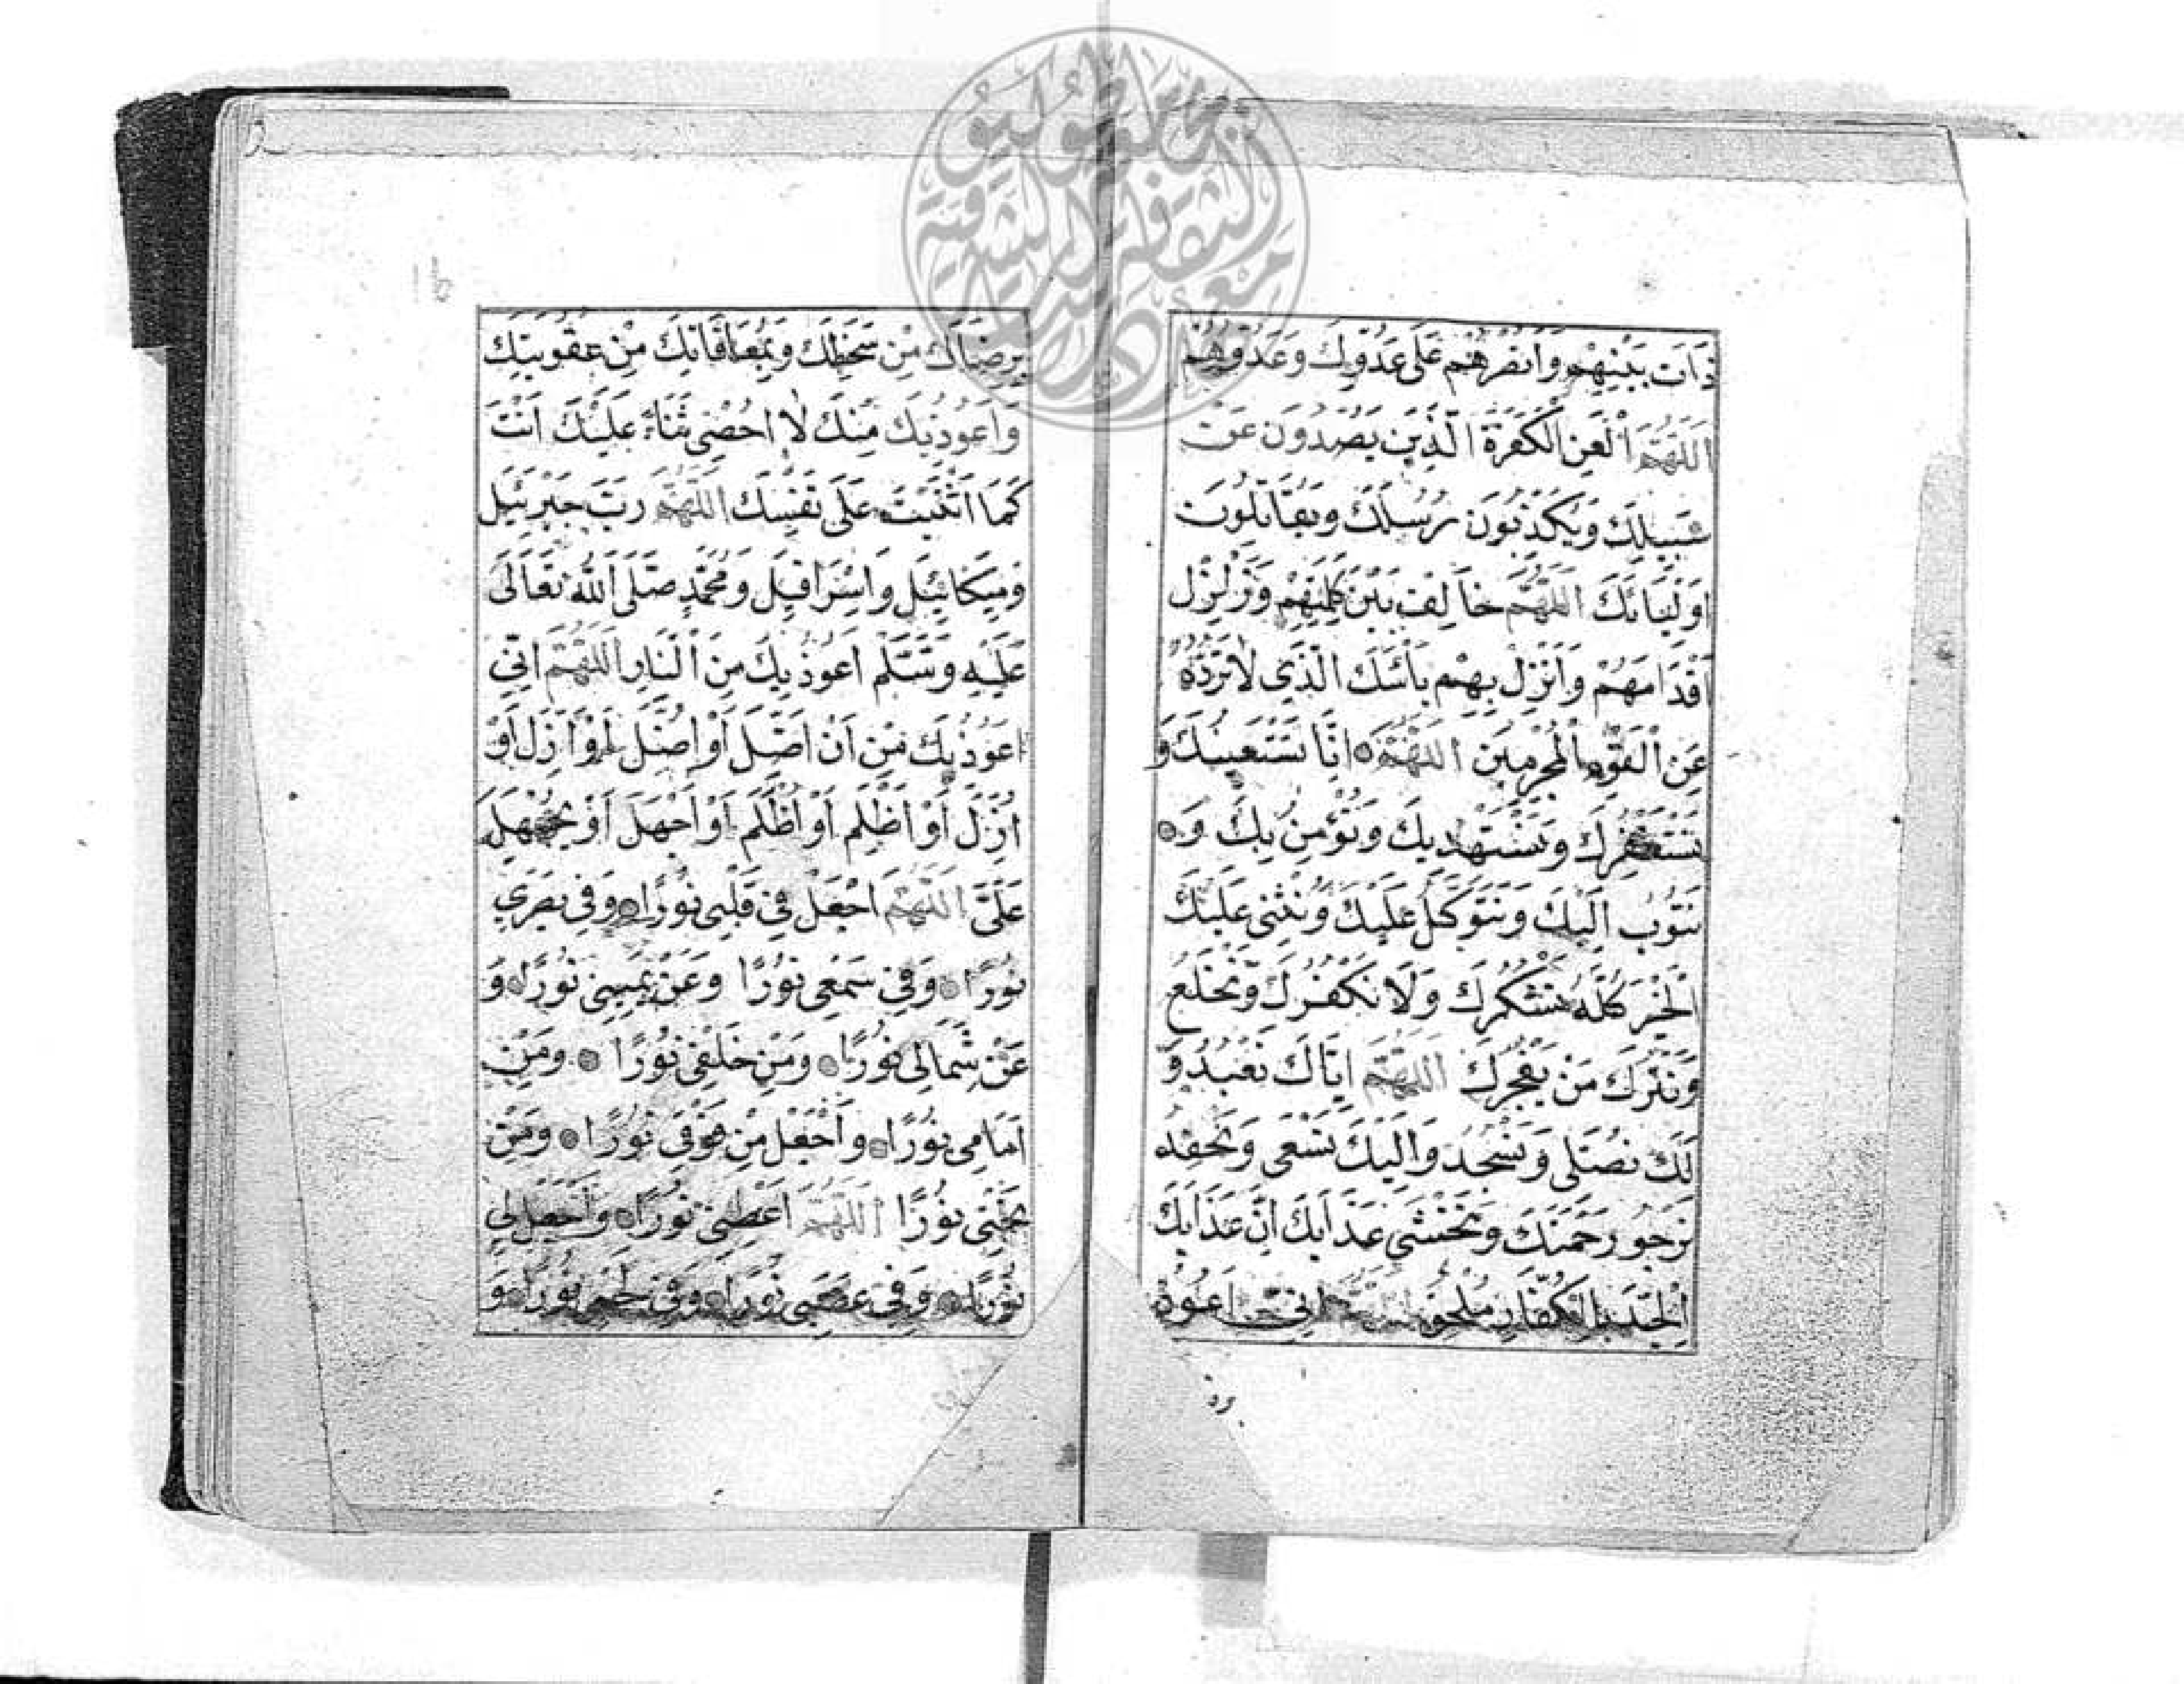 ذَاتَ بَيْنِهِمْ وَانْصُرْهُمْ عَلَى عَدُوِّكَ وَعَدُوِّهِمْ
اَللّٰهُمَّ الْعَنِ الْكَفَرَةَ الَّذِينَ يَصُدُّونَ عَنْ
سَبِيلِكَ وَيُكَذِّبُونَ رُسُلَكَ وَيُقَاتِلُونَ
اَوْلِيَائَكَ اَللّٰهُمَّ خَالِفْ بَيْنَ كَلِمَتِهِمْ وَزَلْزِلْ
اَقْدَامَهُمْ وَاَنْزِلْ بِهِمْ بَأْسَكَ الَّذِي لَا تَرُدُّهُ
عَنِ الْقَوْمِ الْمُجْرِمِينَ اَللّٰهُمَّ اِنَّا نَسْتَعِينُكَ وَ
نَسْتَغْفِرُكَ وَنَسْتَهْدِيكَ وَنُؤْمِنُ بِكَ وَ
نَتُوبُ اِلَيْكَ وَنَتَوَكَّلُ عَلَيْكَ وَنُثْنِي عَلَيْكَ
الْخَيْرَ كُلَّهُ نَشْكُرُكَ وَلَا نَكْفُرُكَ وَنَخْلَعُ
وَنَتْرُكُ مَنْ يَفْجُرُكَ اَللّٰهُمَّ اِيَّاكَ نَعْبُدُ وَ
لَكَ نُصَلِّي وَنَسْجُدُ وَاِلَيْكَ نَسْعَى وَنَحْفِدُ
نَرْجُو رَحْمَتَكَ وَنَخْشَى عَذَابَكَ اِنَّ عَذَابَكَ
الْجِدَّ بِالْكُفَّارِ مُلْحِقٌ اَللّٰهُمَّ اِنِّي اَعُوذُ
بِرِضَاكَ مِنْ سَخَطِكَ وَبِمُعَافَاتِكَ مِنْ عُقُوبَتِكَ
وَاَعُوذُ بِكَ مِنْكَ لَا اُحْصِي ثَنَاءً عَلَيْكَ اَنْتَ
كَمَا اَثْنَيْتَ عَلَى نَفْسِكَ اَللّٰهُمَّ رَبَّ جَبْرَئِيلَ
وَمِيكَائِيلَ وَاِسْرَافِيلَ وَمُحَمَّدٍ صَلَّى اللهُ تَعَالَى
عَلَيْهِ وَسَلَّمَ اَعُوذُ بِكَ مِنَ النَّارِ اَللّٰهُمَّ اِنِّي
اَعُوذُ بِكَ مِنْ اَنْ اَضِلَّ اَوْ اُضَلَّ اَوْ اَزِلَّ اَوْ
اُزَلَّ اَوْ اَظْلِمَ اَوْ اُظْلَمَ اَوْ اَجْهَلَ اَوْ يُجْهَلَ
عَلَيَّ اَللّٰهُمَّ اجْعَلْ فِي قَلْبِي نُورًا وَفِي بَصَرِي
نُورًا وَفِي سَمْعِي نُورًا وَعَنْ يَمِينِي نُورًا وَ
عَنْ شِمَالِي نُورًا وَمِنْ خَلْفِي نُورًا وَمِنْ
اَمَامِي نُورًا وَاجْعَلْ مِنْ فَوْقِي نُورًا وَمِنْ
تَحْتِي نُورًا اَللّٰهُمَّ اَعْطِنِي نُورًا وَاجْعَلْ لِي
نُورًا وَفِي عَصَبِي نُورًا وَفِي لَحْمِي نُورًا وَ